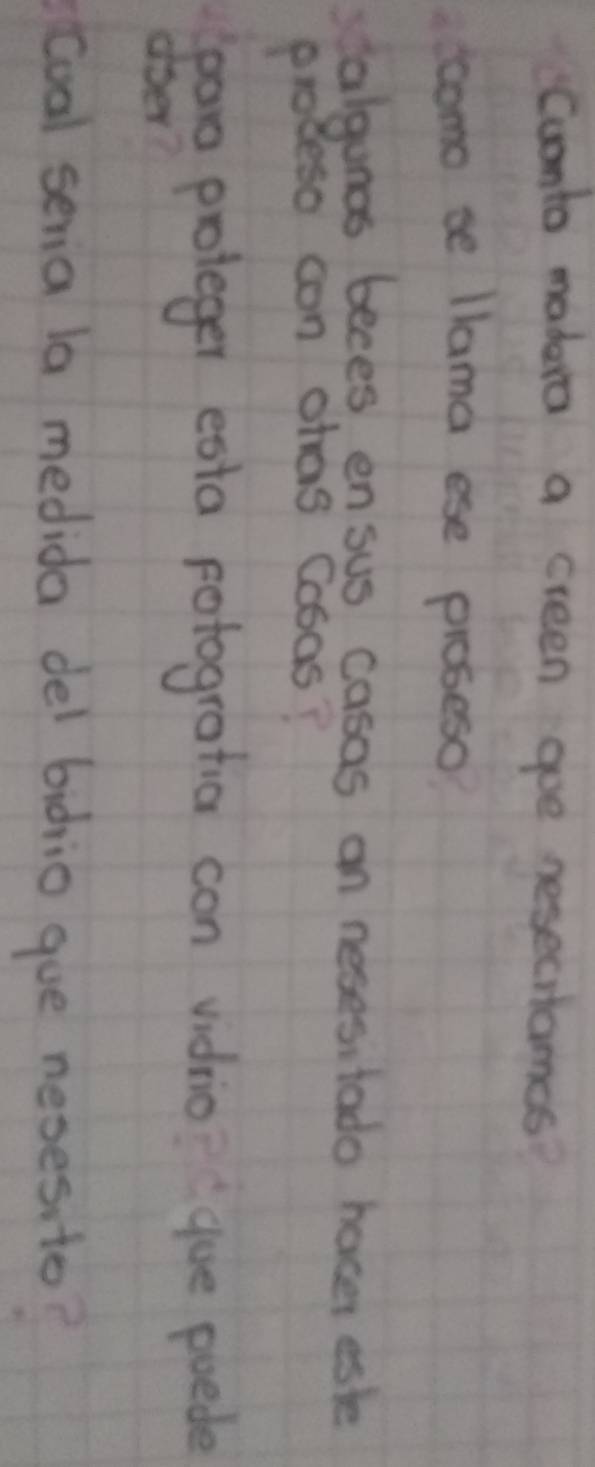 1¿Cuanta madera a creen que nesecitamos?
2¿como se llama ese proseso?
3¿algunas beces en sus casas an nesesitado hacer este
proceso con otras Cosas?
4¿para proteger esta fotografia con vidrio?¿que puede
aser?
5¿Cual seria la medida del bidrio que nesesito?